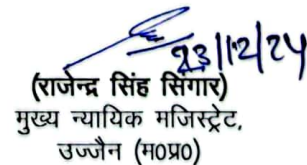 23/12/24
(राजेन्द्र सिंह सिंगार)
मुख्य न्यायिक मजिस्ट्रेट,
उज्जैन (म0प्र0)